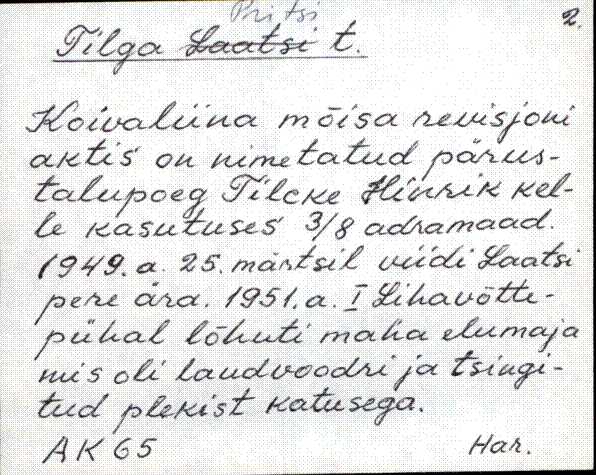 Pritsi
2.
Tilga Laatsi t.
Koivaliina mõisa revisjoni
aktis on nimetatud pärus-
talupoeg Tilcke Hinrik kel-
le kasutuses 3/8 adramaad.
1949. a. 25. märtsil viidi Laatsi
pere ära. 1951. a. I Lihavõtte-
pühal lõhuti maha elumaja
mis oli laudvoodri ja tsingi-
tud plekist katusega.
AK 65 Har.